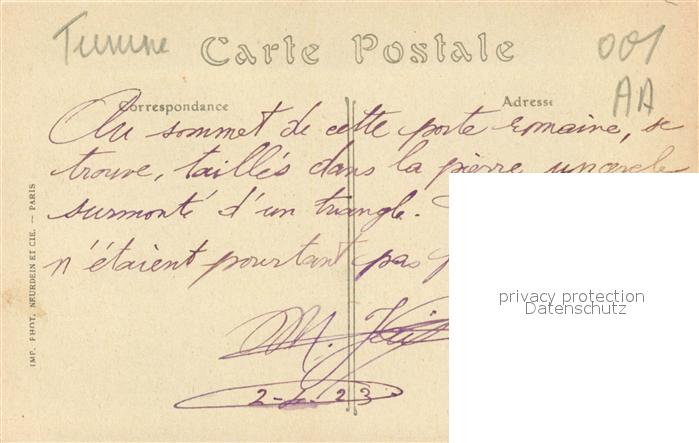 Tunisie
Carte Postale
001
AA
Correspondance
Adresse
Au sommet de cette porte romaine, se
trouve, taillés dans la pierre un cercle
surmonté d'un triangle.
n'étaient pourtant pas
M.
2-4-23
IMP. PHOT. NEURDEIN ET CIE. — PARIS
privacy protection
Datenschutz